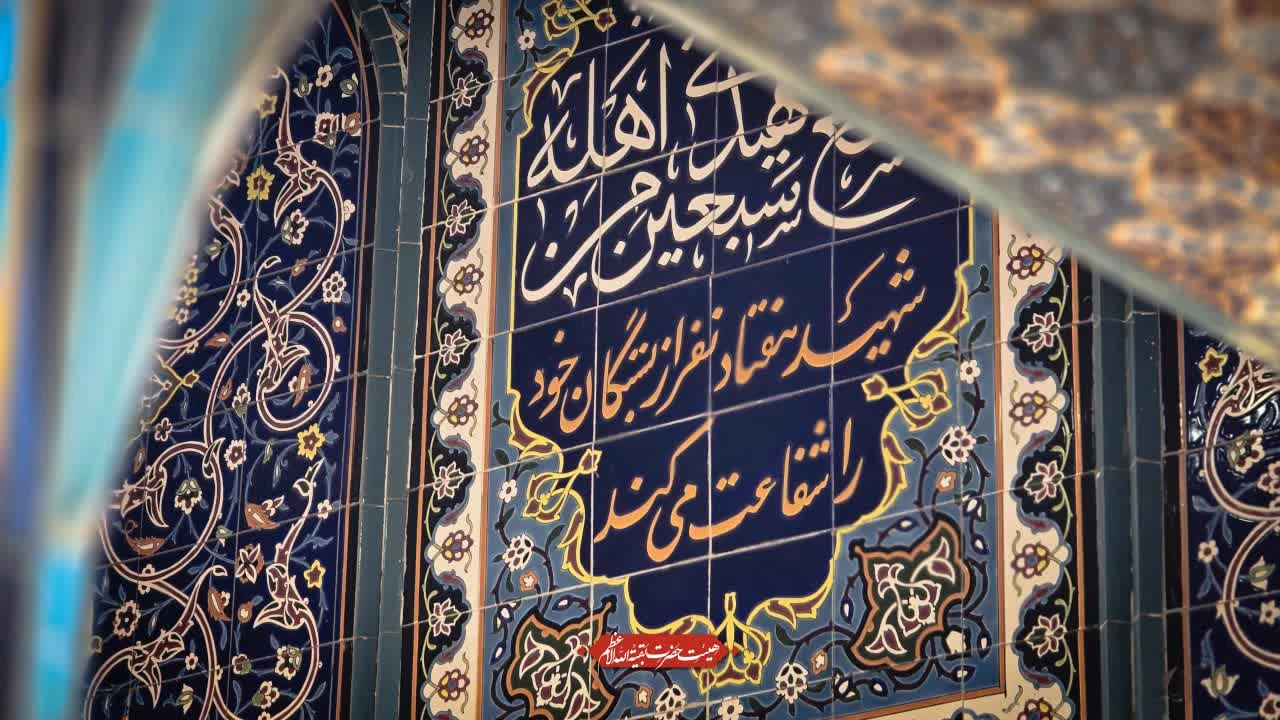 سبعین من اهله
شهید هفتاد نفر از بستگان خود
را شفاعت می کند
هیئت حضرت بقیة الله الاعظم